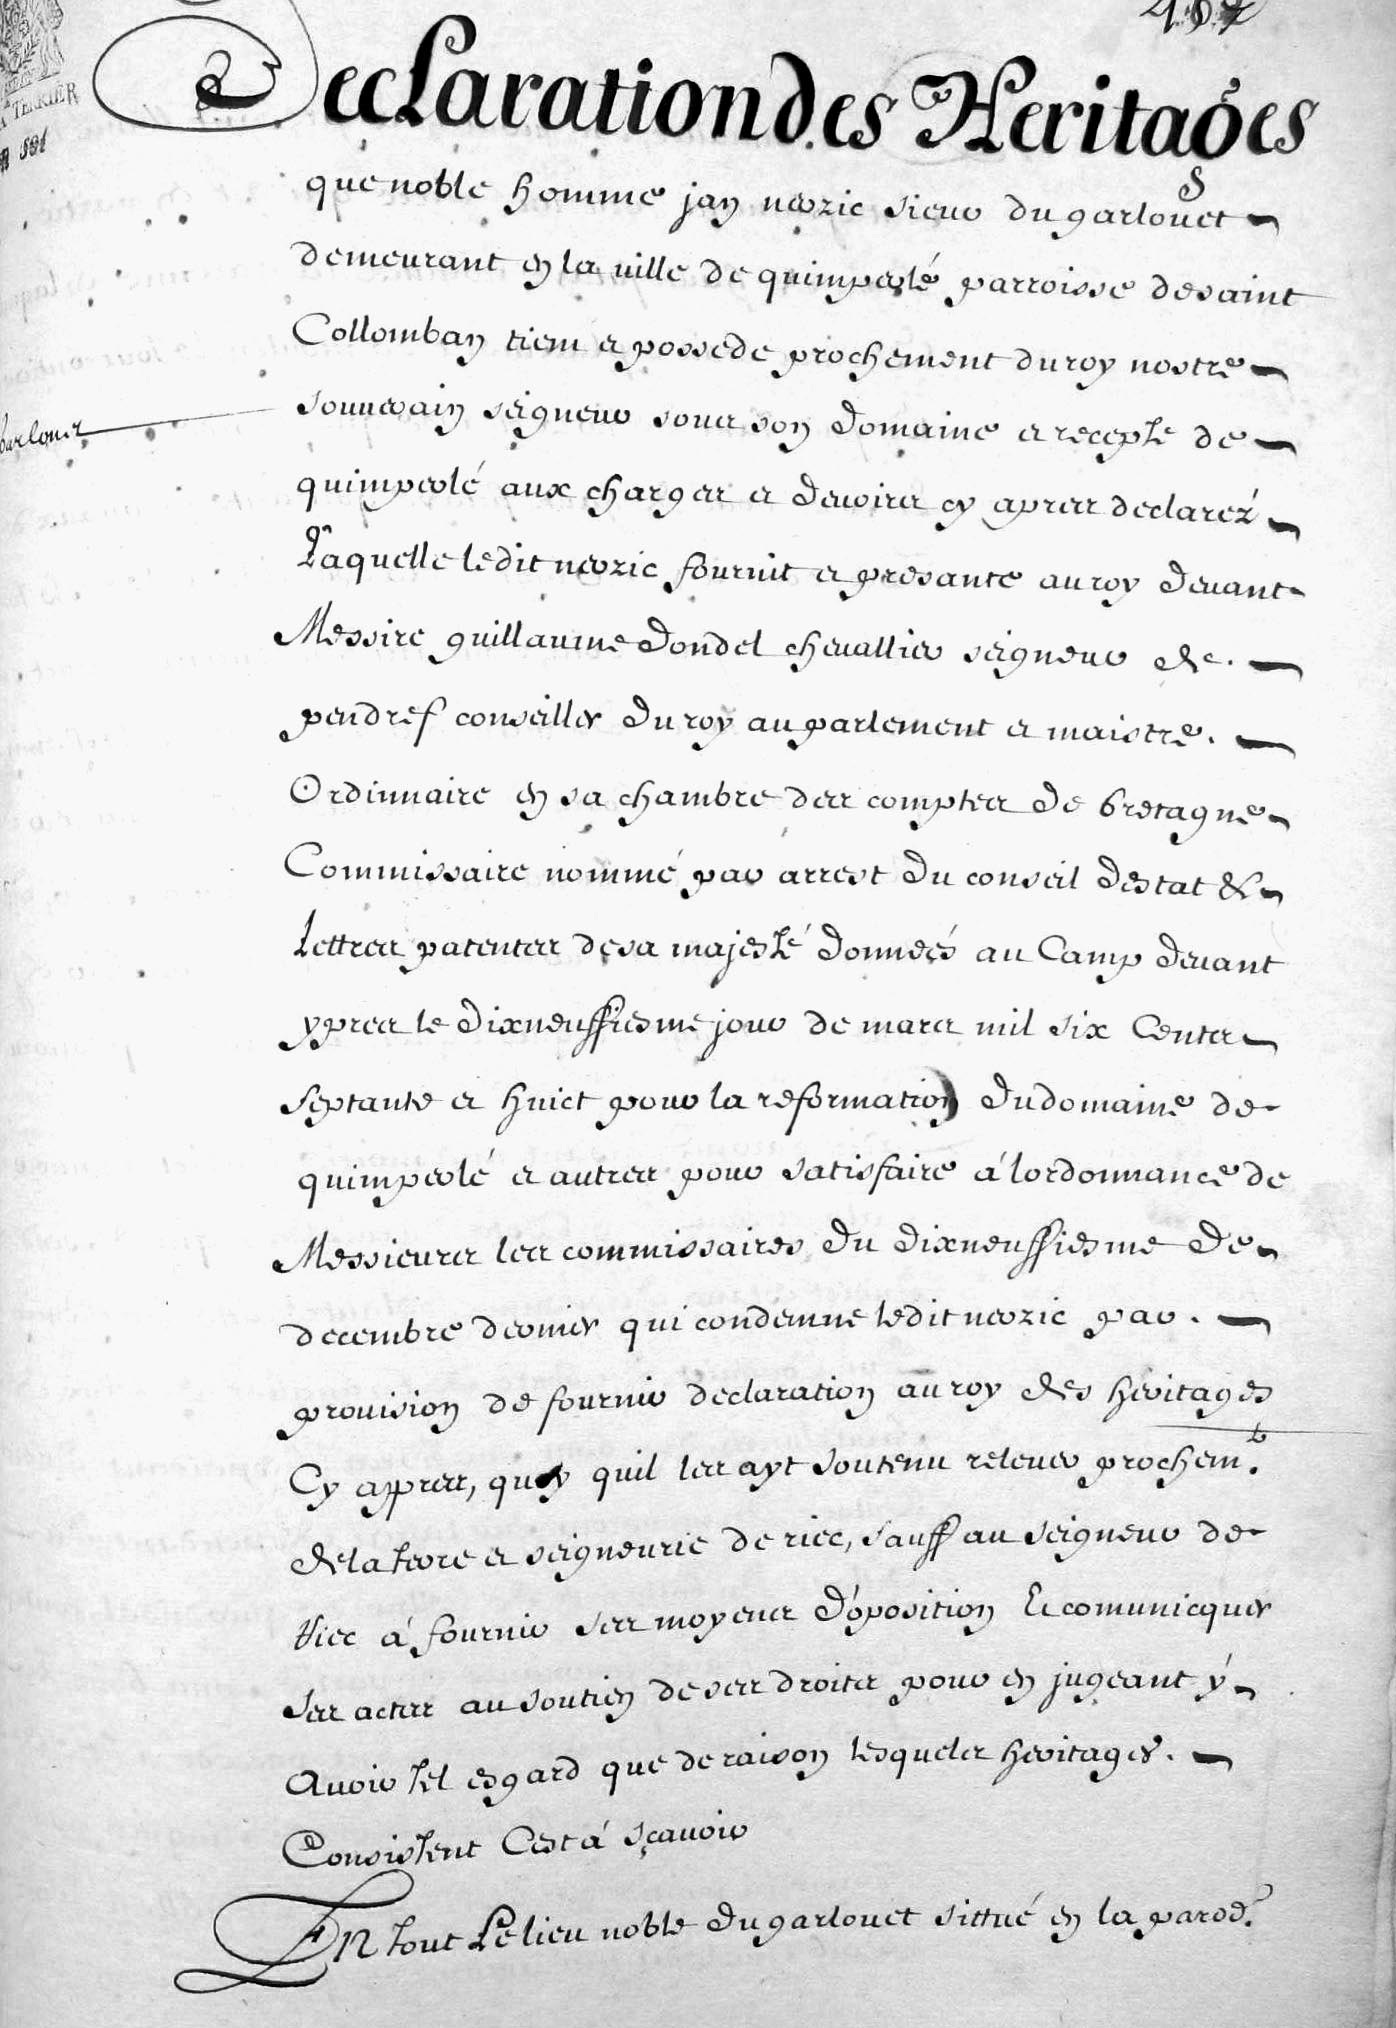 Declaration des Heritages
que noble homme jan nerzic sieur du garlouet
demeurant en la ville de quimperlé parroisse de saint
Collomban tient et possede prochement du roy nostre
souuerain seigneur soubs son domaine et recepte de
quimperlé aux charges et deuoirs cy apres declarez
Laquelle ledit nerzic fournit et presante au roy deuant
Messire guillaume dondel cheuallier seigneur de
pendref conseiller du roy au parlement et maistre
Ordinnaire en sa chambre des comptes de bretagne
Commissaire nommé par arrest du conseil destat &
Lettres patentes de sa majesté donneés au Camp deuant
ypres le dixneuffiesme jour de mars mil six Cents
septante et huict pour la reformation du domaine de
quimperlé et autres pour satisfaire á lordonnance de
Messieurs les commissaires du dixneuffiesme de
decembre dernier qui condemne ledit nerzic par
prouision de fournir declaration au roy des heritages
Cy appres, quoy quil les ayt soutenu releuer prochemt.
de la terre et seigneurie de riec, sauff au seigneur de
Riec á fournir ses moyens d'oposition Et comunicquer
ses actes au soutien de ses droits pour en jugeant y
Auoir tel esgard que de raison lesquels heritages
Consistent Cest á sçauoir
En tout Le lieu noble du garlouet sittué en la parroe.
garlouet